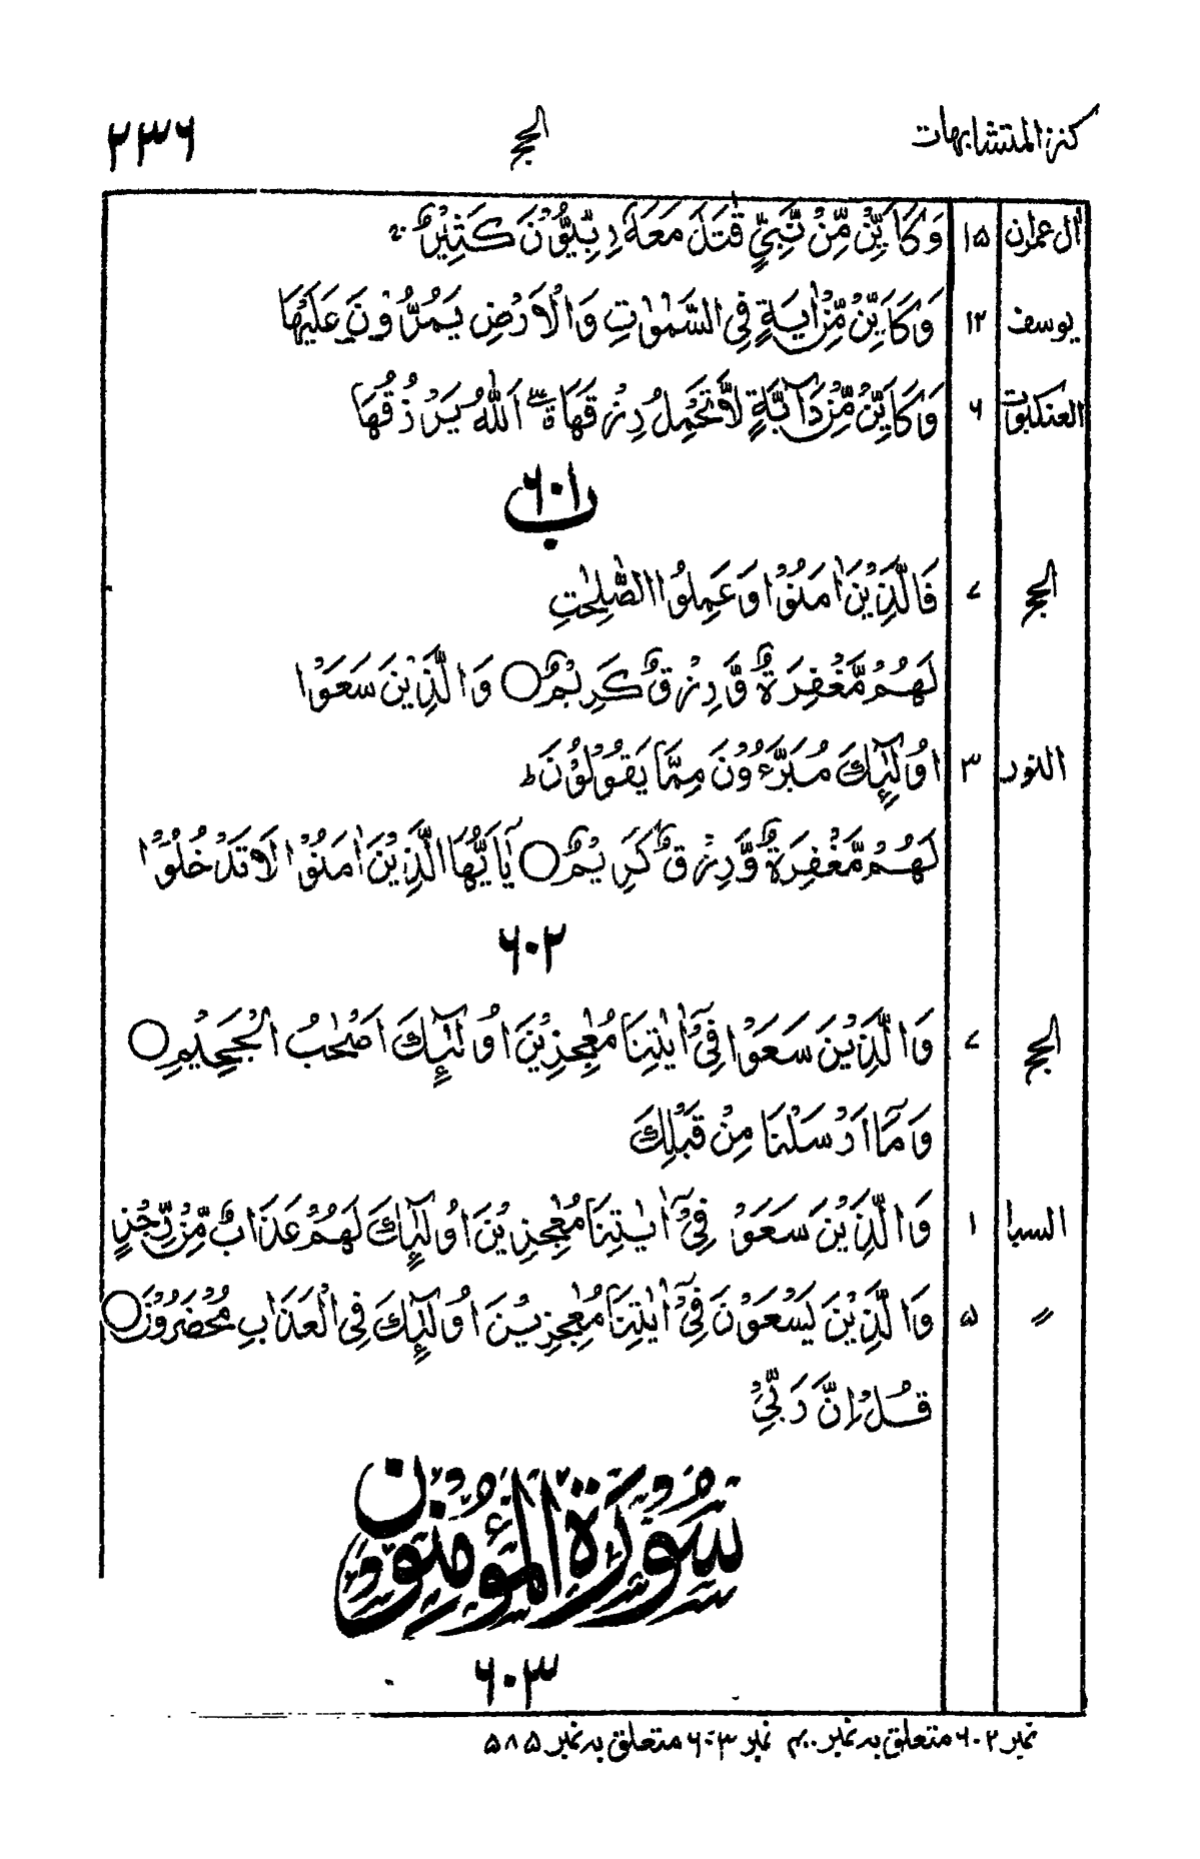 کنز المتشابہات الحج ۲۳۶
اٰل عمران ۱۵ وَكَاَيِّنْ مِّنْ نَّبِيٍّ قٰتَلَ مَعَهٗ رِبِّيُّوْنَ كَثِيْرٌ
يوسف ۱۲ وَكَاَيِّنْ مِّنْ اٰيَةٍ فِي السَّمٰوٰتِ وَالْاَرْضِ يَمُرُّوْنَ عَلَيْهَا
العنكبوت ۶ وَكَاَيِّنْ مِّنْ دَآبَّةٍ لَّا تَحْمِلُ رِزْقَهَا ۗ اَللّٰهُ يَرْزُقُهَا
۶۰۱ ب
الحج ۷ فَالَّذِيْنَ اٰمَنُوْا وَعَمِلُوا الصّٰلِحٰتِ
لَهُمْ مَّغْفِرَةٌ وَّرِزْقٌ كَرِيْمٌ ○ وَالَّذِيْنَ سَعَوْا
النور ۳ اُولٰٓئِكَ مُبَرَّءُوْنَ مِمَّا يَقُوْلُوْنَ ؕ
لَهُمْ مَّغْفِرَةٌ وَّرِزْقٌ كَرِيْمٌ ○ يٰٓاَيُّهَا الَّذِيْنَ اٰمَنُوْا لَا تَدْخُلُوْا
۶۰۲
الحج ۷ وَالَّذِيْنَ سَعَوْا فِيْٓ اٰيٰتِنَا مُعٰجِزِيْنَ اُولٰٓئِكَ اَصْحٰبُ الْجَحِيْمِ ○
وَمَآ اَرْسَلْنَا مِنْ قَبْلِكَ
السبا ۱ وَالَّذِيْنَ سَعَوْ فِيْٓ اٰيٰتِنَا مُعٰجِزِيْنَ اُولٰٓئِكَ لَهُمْ عَذَابٌ مِّنْ رِّجْزٍ
〃 ۵ وَالَّذِيْنَ يَسْعَوْنَ فِيْٓ اٰيٰتِنَا مُعٰجِزِيْنَ اُولٰٓئِكَ فِي الْعَذَابِ مُحْضَرُوْنَ ○
قُلْ اِنَّ رَبِّيْ
سُوْرَةُ الْمُؤْمِنُوْنَ
۶۰۳
نمبر ۶۰۲ متعلق بہ نمبر نمبر ۶۰۳ متعلق بہ نمبر ۵۸۵